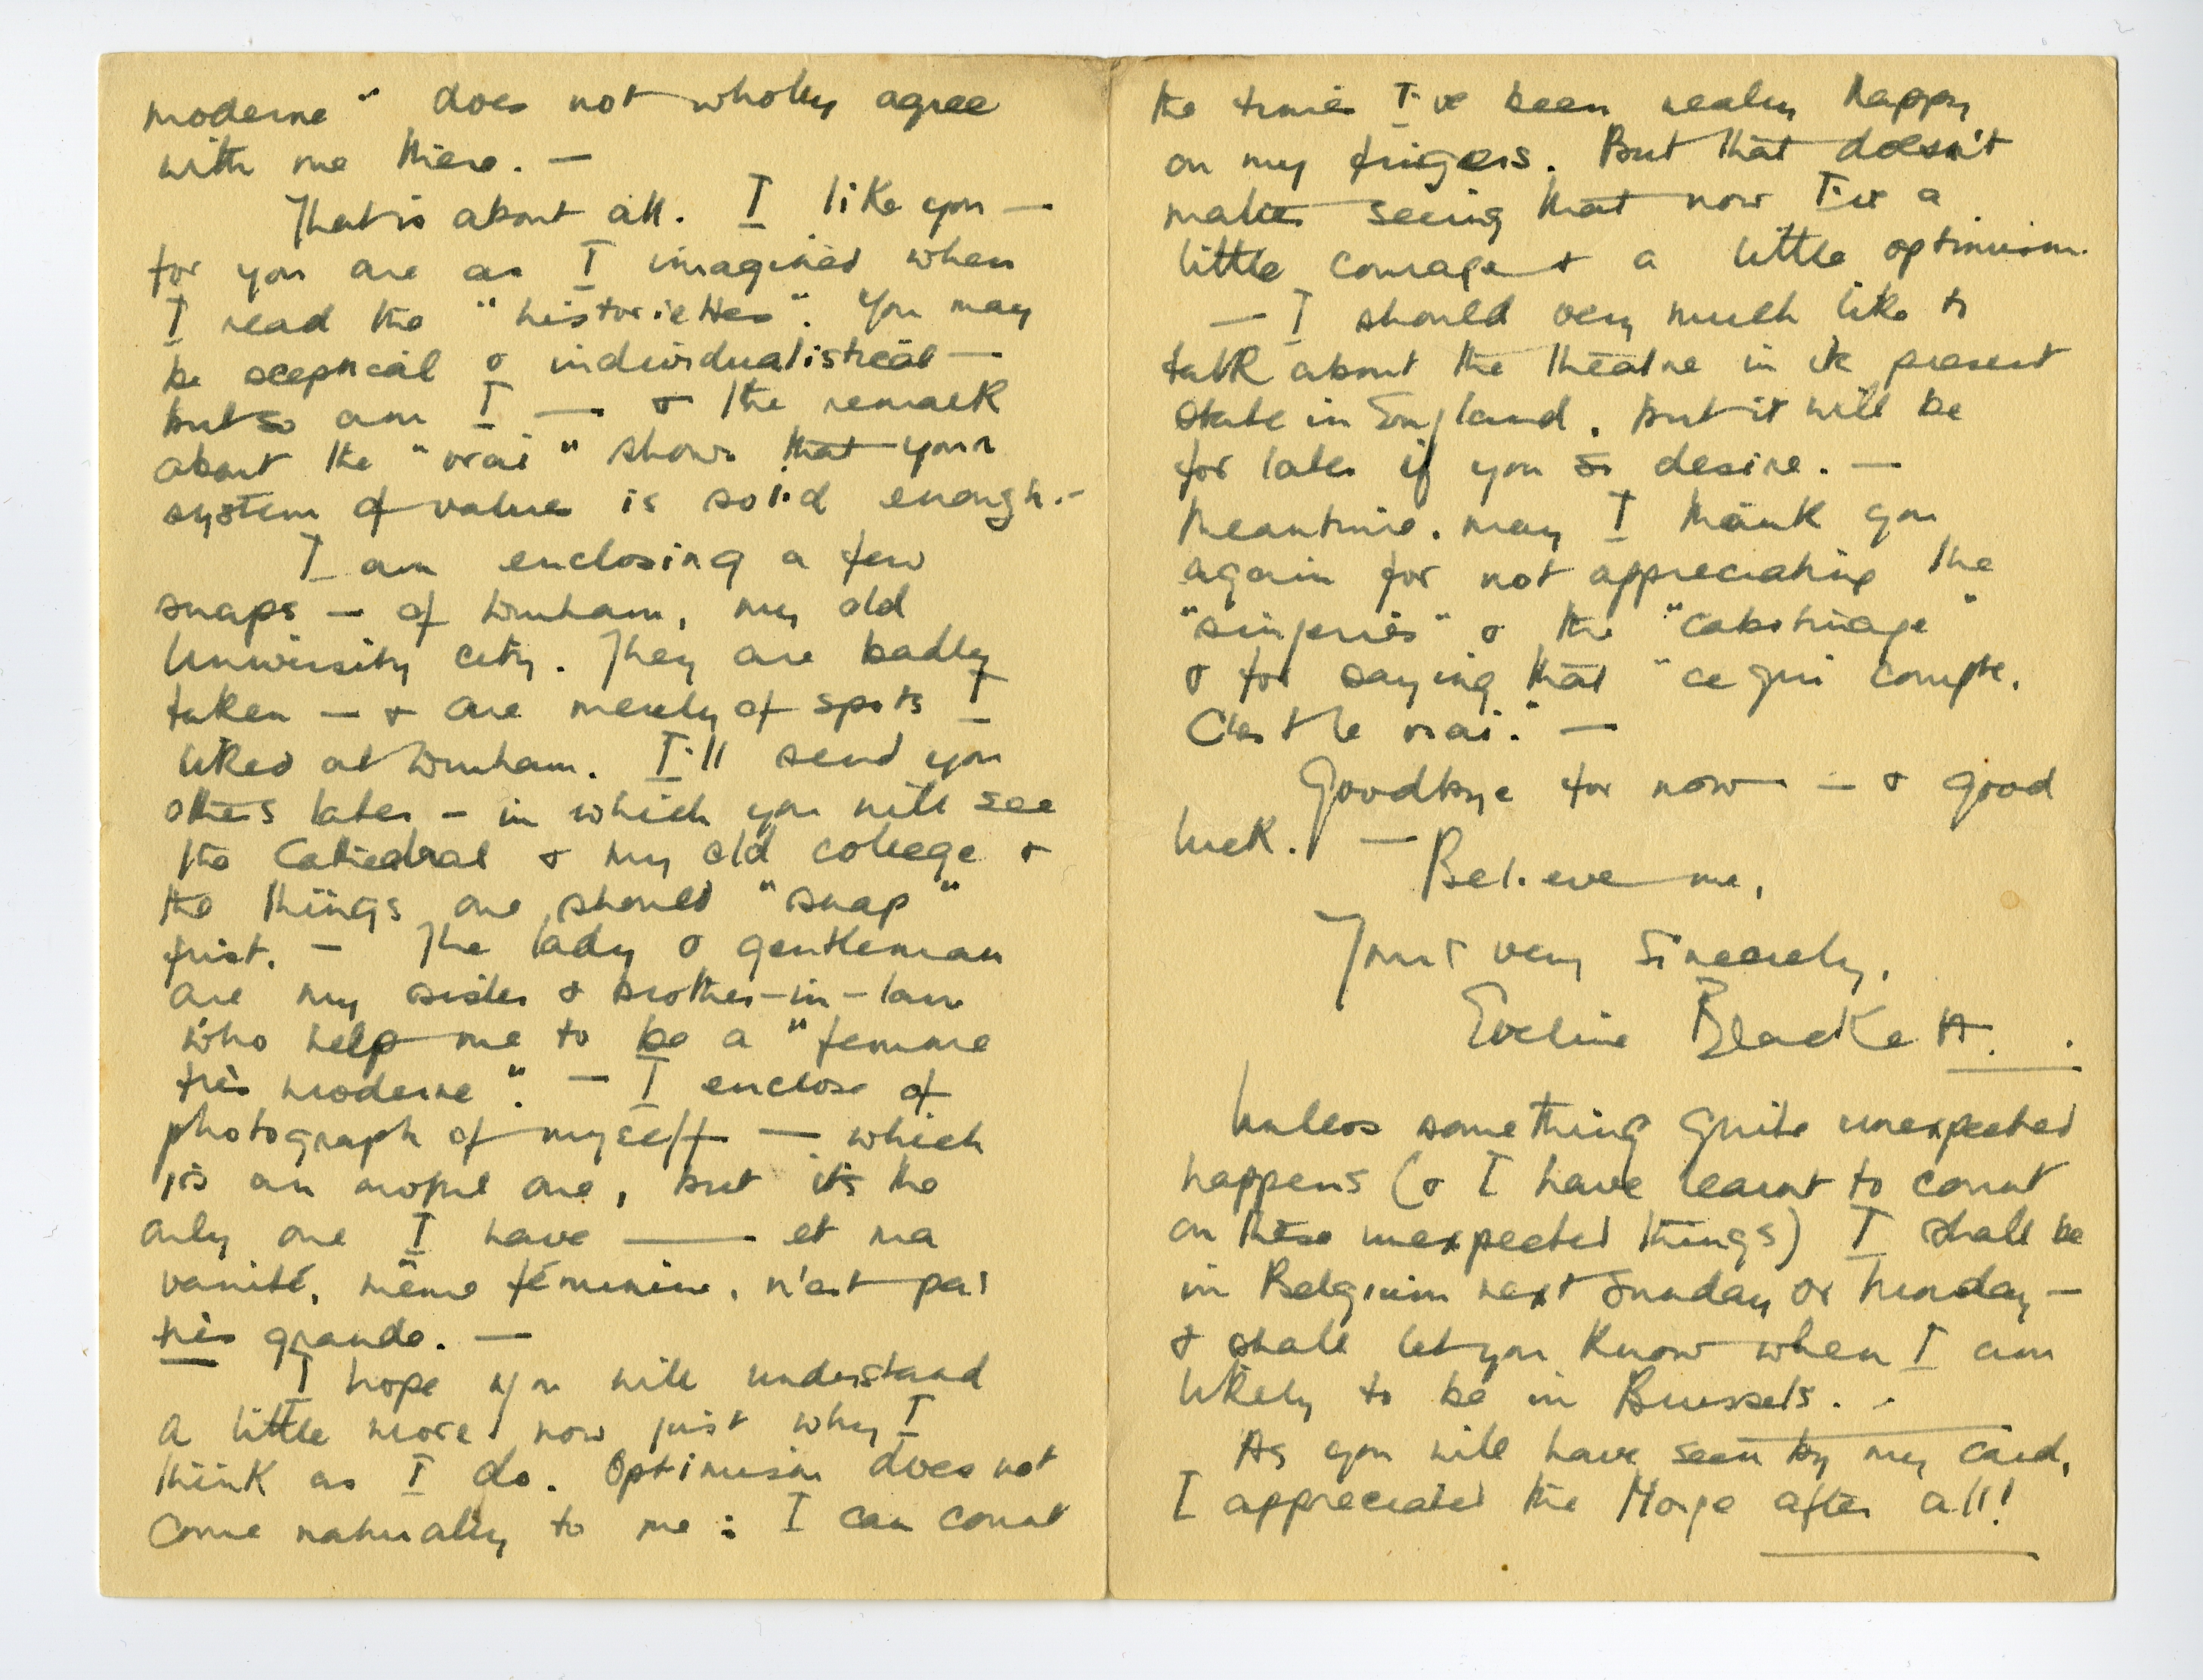 moderne" does not wholly agree
with me there. —
That is about all. I like you —
for you are as I imagined when
I read the "historiettes". You may
be sceptical & individualistical —
but so am I — & the remark
about the "vrai" shows that your
system of values is solid enough. -
I am enclosing a few
snaps — of Durham, my old
University city. They are badly
taken — & are merely of spots I
liked at Durham. I'll send you
others later - in which you will see
the Cathedral & my old college &
the things one should "snap"
first. — The lady & gentleman
are my sister & brother-in-law
who help me to be a "femme
très moderne". — I enclose of
photograph of myself — which
is an awful one, but it's the
only one I have — et ma
vanité, même féminine, n'est pas
très grande. —
I hope you will understand
a little more now just why I
think as I do. Optimism does not
come naturally to me: I can count
the times I've been really happy
on my fingers. But that doesn't
matter seeing that now I've a
little courage & a little optimism.
— I should very much like to
talk about the theatre in its present
state in England. But it will be
for later if you so desire. —
Meantime, may I thank you
again for not appreciating the
"singeries" & the "cabotinage"
& for saying that "ce qui compte,
C'est le vrai." —
Goodbye for now — & good
luck. — Believe me,
Yours very sincerely,
Eveline Blackett.
Unless something quite unexpected
happens (& I have learnt to count
on these unexpected things) I shall be
in Belgium next Sunday or Monday —
& shall let you know when I am
likely to be in Brussels. -
As you will have seen by my card,
I appreciated the after all!